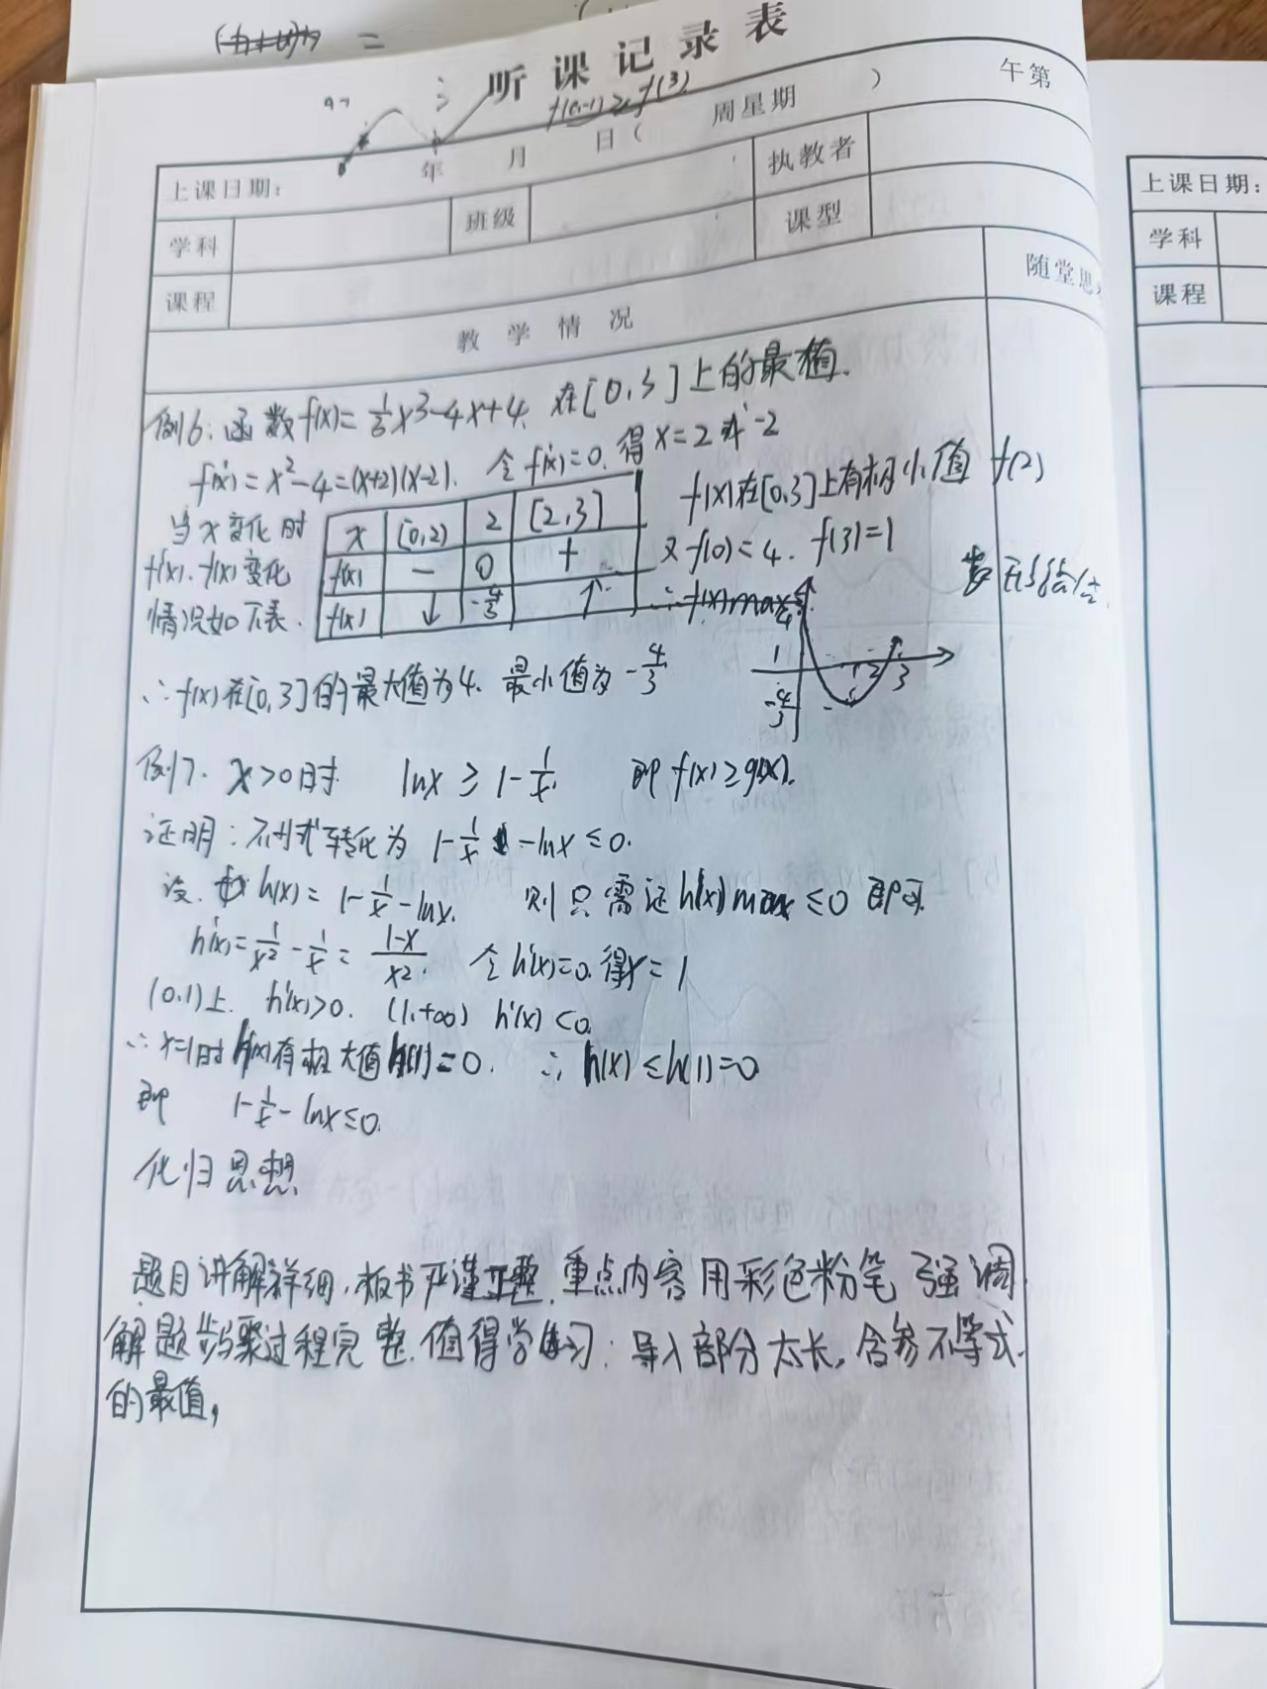 听课记录表
f(a-1)≥f(3)
年 月 日( 周星期 ) 午第
上课日期:
执教者
学科
班级
课型
课程
教学情况
随堂思
例6:函数f(x)=1/3x³-4x+4.在[0,3]上的最值.
f'(x)=x²-4=(x+2)(x-2). 令f'(x)=0.得x=2或-2
当x变化时
f'(x).f(x)变化
情况如下表.
x [0,2) 2 [2,3]
f'(x) - 0 +
f(x) ↓ -4/3 ↑
f(x)在[0,3]上有极小值 f(2)
又f(0)=4. f(3)=1
∴f(x)max
4
1
-4/3
2 3
∴f(x)在[0,3]的最大值为4.最小值为-4/3
例7. x>0时 lnx≥1-1/x 即f(x)≥g(x).
证明:不等式转化为 1-1/x-lnx≤0.
设. h(x)=1-1/x-lnx. 则只需证h(x)max≤0即可.
h'(x)=1/x²-1/x=(1-x)/x². 令h'(x)=0.得x=1
(0.1)上. h'(x)>0. (1,+∞) h'(x)<0.
∴x=1时h(x)有极大值h(1)=0. ∴h(x)≤h(1)=0
即 1-1/x-lnx≤0.
化归思想
题目讲解详细,板书严谨工整.重点内容用彩色粉笔强调
解题步骤过程完整.值得学习:导入部分太长,含参不等式
的最值,
上课日期:
学科
课程